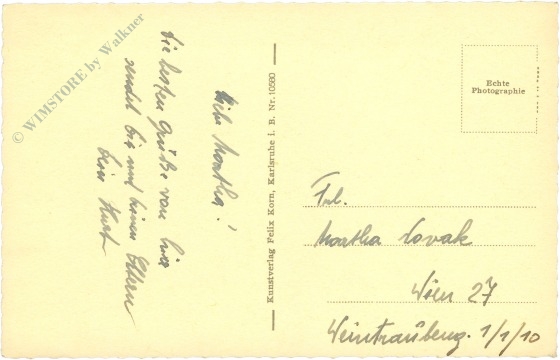 Liebe Martha!
Die besten Grüße von hier
sendet Dir und deinen Eltern
Dein Kurt
© WIMSTORE by Walkner
Kunstverlag Felix Korn, Karlsruhe i. B. Nr. 10580
Echte
Photographie
Frl.
Martha Novak
Wien 27
Weintraubeng. 1/1/10